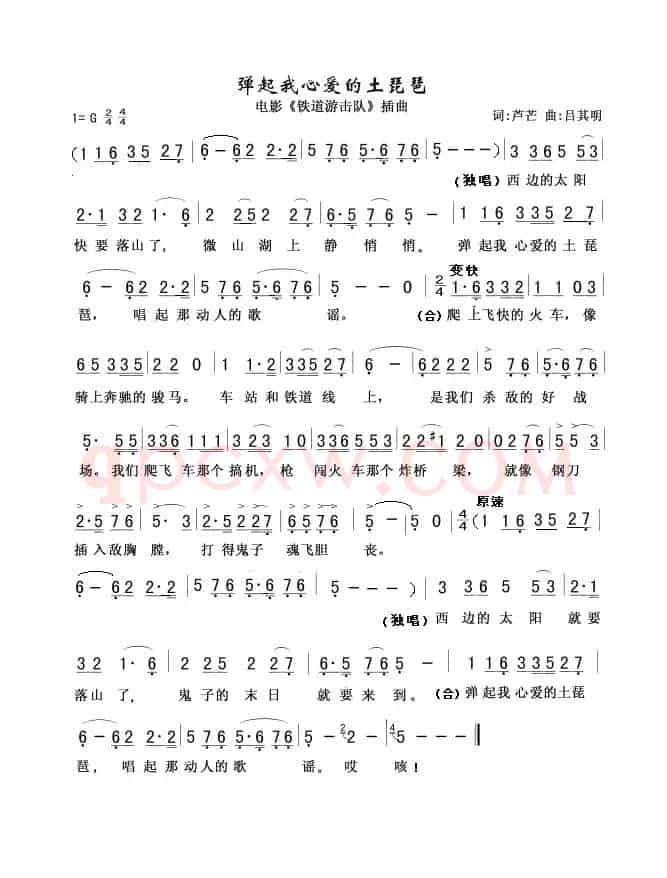 弹起我心爱的土琵琶
电影《铁道游击队》插曲
1= G 2/4 4/4 词:芦芒 曲:吕其明
(1 16 35 27 | 6 - 62 2·2 | 576 5·6 76 | 5 - - -) | 3 365 53 |
(独唱) 西 边的太 阳
2·1 32 1· 6 | 2 252 27 | 6·5 76 5 - | 1 116 3352 7 |
快要 落山了, 微 山湖 上 静 悄悄。 弹 起我 心爱的土 琵
6 - 62 2·2 | 576 5·6 76 | 5 - - 0 | 变快 2/4 1·6 332 | 1 1 03 |
琶, 唱起那动人的歌 谣。 (合) 爬上飞快的火车,像
65335 | 22 0 | 1 1·2 | 335 27 | 6 - | 6222 | 5 76 | 5·6 76 |
骑上奔驰的骏马。 车 站和铁道线上, 是我们 杀 敌的好 战
5· 55 | 336 111 | 3·0 3 | 336553 | 22 1# | 0276 | 55 |
场。我们爬飞 车那个 搞机,枪 闯火车那个炸桥 梁, 就像 钢刀
2·5 76 | 5· 3 | 2·5 227 | 6576 | 5 - | 5 0 | 原速 4/4 (1 16 35 27 |
插入敌胸 膛, 打 得鬼子 魂飞胆 丧。
6 - 62 2·2 | 576 5·6 76 | 5 - - -) | 3 36 5 53 | 2·1
(独唱) 西 边的太 阳 就要
32 1· 6 | 2 25 2 27 | 6·5 76 5 - | 1 116 3352 7 |
落山 了, 鬼 子的 末 日 就要来 到。 (合) 弹起我 心爱的土琵
6 - 62 2·2 | 576 5·6 76 | 5 - 2 2 - | 4 5 - - - ‖
琶, 唱 起 那动人的歌 谣。哎 咳!
qpcxw.COM